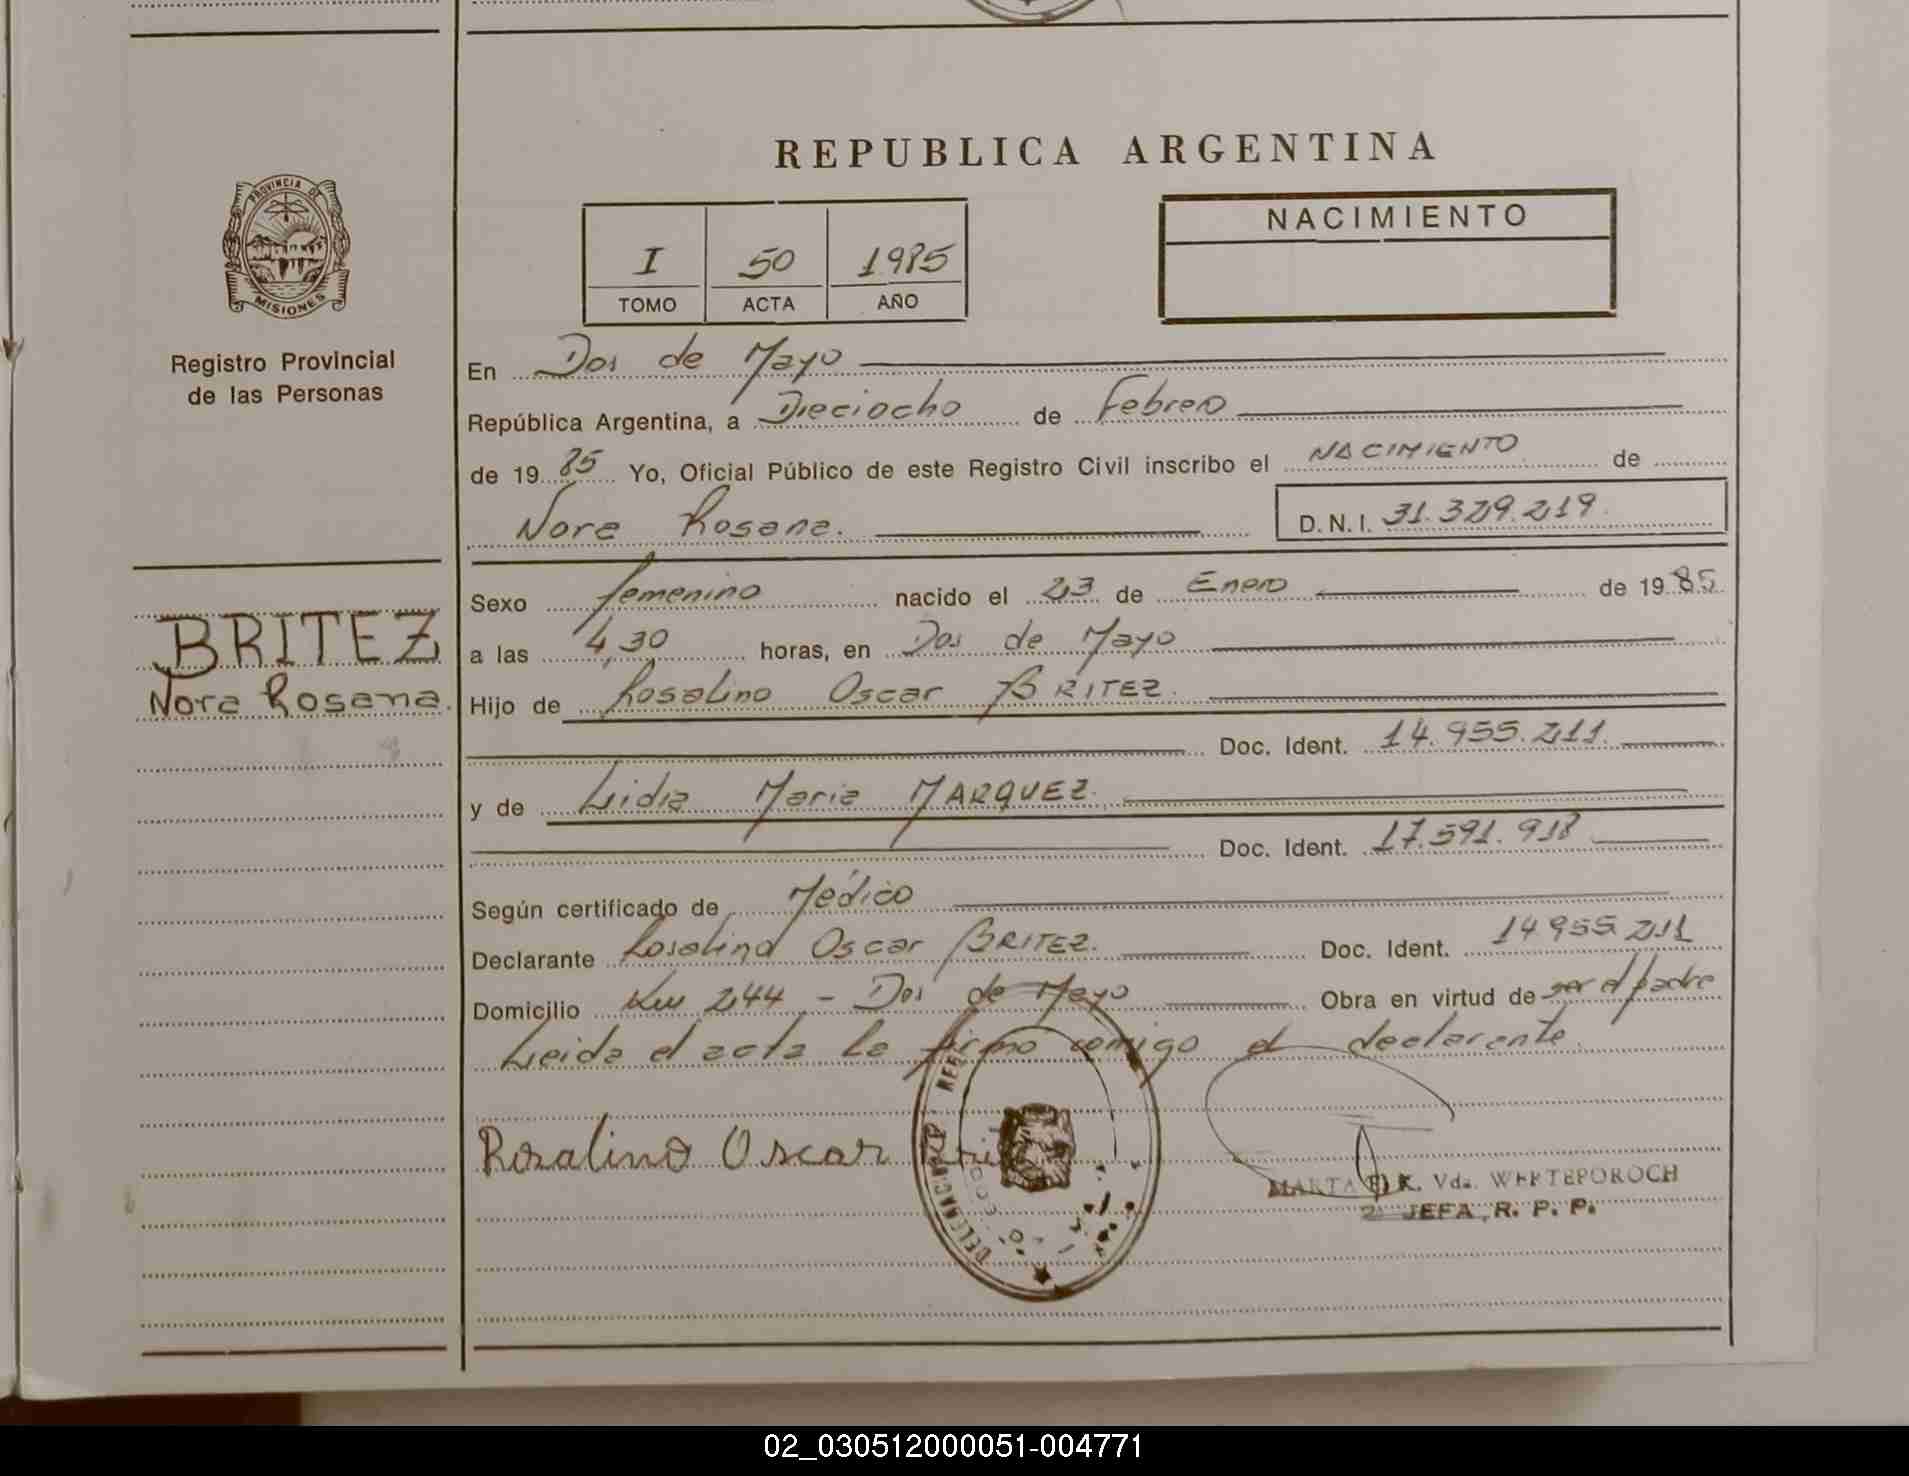 REPUBLICA ARGENTINA
PROVINCIA DE
MISIONES
Registro Provincial
de las Personas
NACIMIENTO
I 50 1985
TOMO ACTA AÑO
En Dos de Mayo
República Argentina, a Dieciocho de Febrero
de 1985 Yo, Oficial Público de este Registro Civil inscribo el NACIMIENTO de
Nora Rosana.
D.N.I. 31.329.219.
BRITEZ
Nora Rosana.
Sexo femenino nacido el 23 de Enero de 1985.
a las 4,30 horas, en Dos de Mayo
Hijo de Rosalino Oscar BRITEZ.
Doc. Ident. 14.955.211.
y de Lidia Maria MARQUEZ.
Doc. Ident. 17.591.918
Según certificado de Médico
Declarante Rosalino Oscar BRITEZ. Doc. Ident. 14955.211
Domicilio Km 244 - Dos de Mayo Obra en virtud de ser el padre
Leida el acta la firma comigo el declarante.
Rosalino Oscar
DELEGACION
MARTA K. Vda. WERTEPOROCH
JEFA R. P. P.
02_030512000051-004771